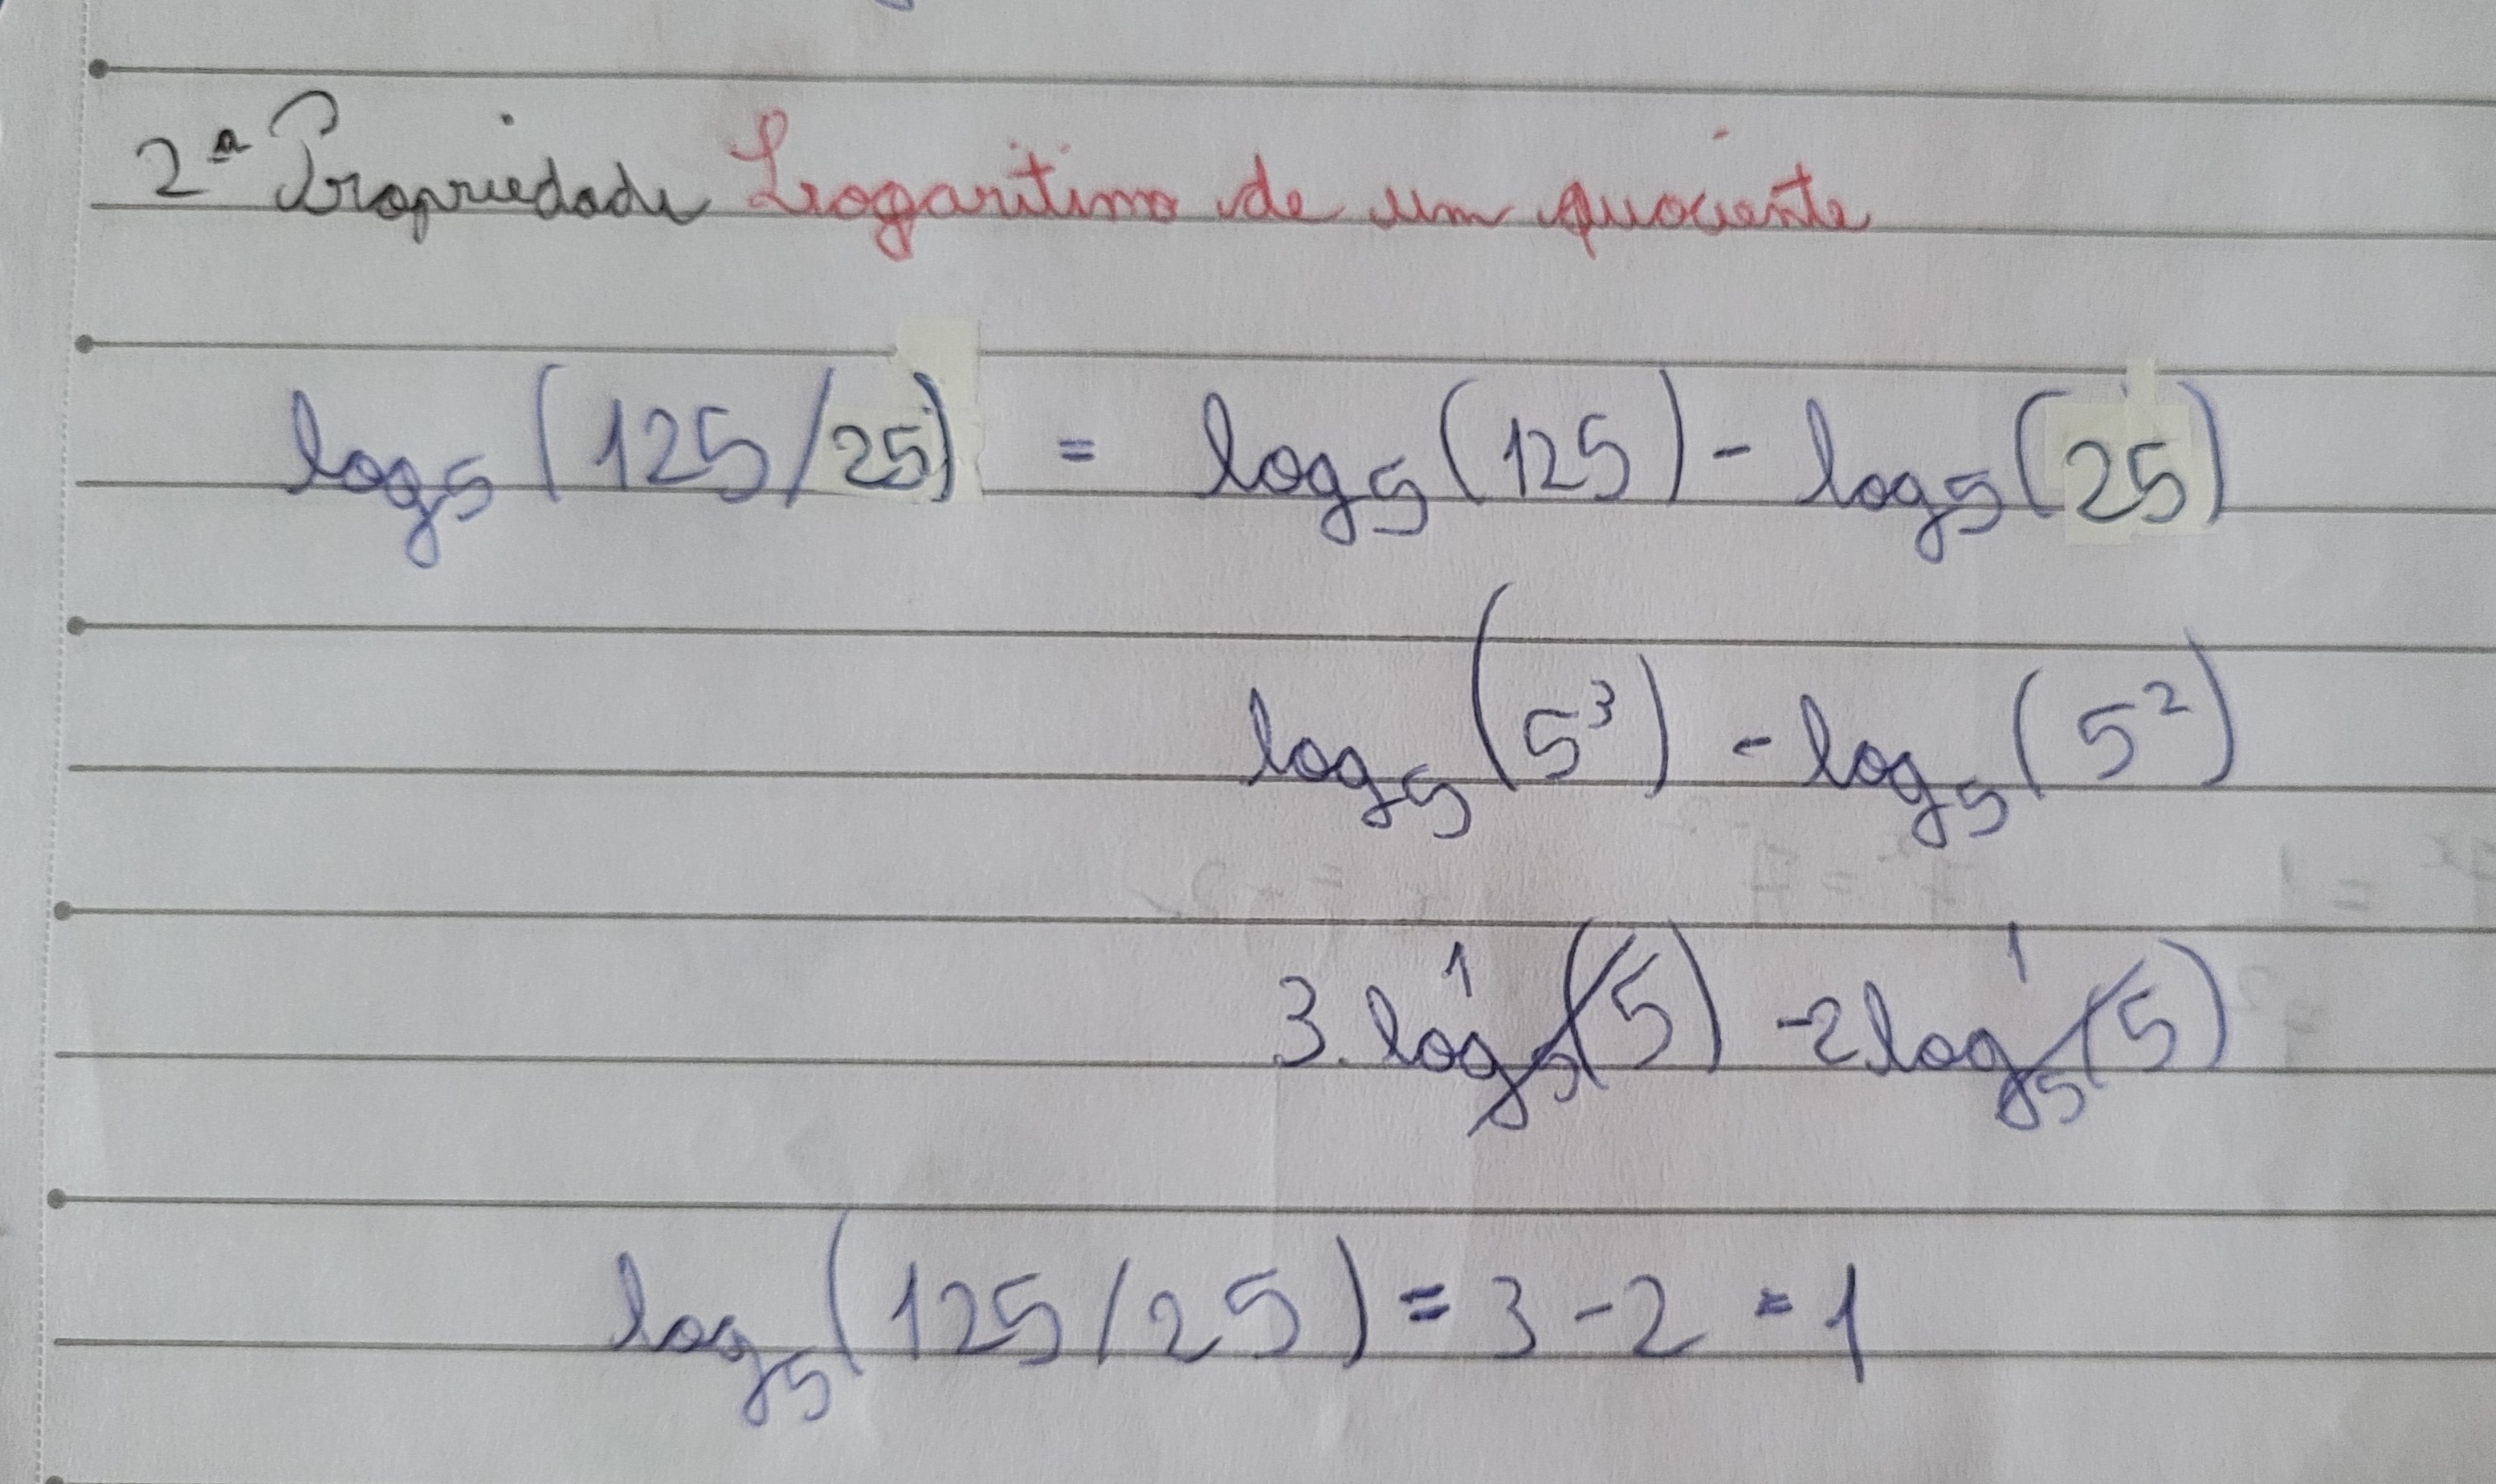 2ª Propriedade Logaritimo de um quociente
log₅(125/25) = log₅(125) - log₅(25)
log₅(5³) - log₅(5²)
1 1
3.log₅(5) -2log₅(5)
log₅(125/25) = 3 - 2 = 1